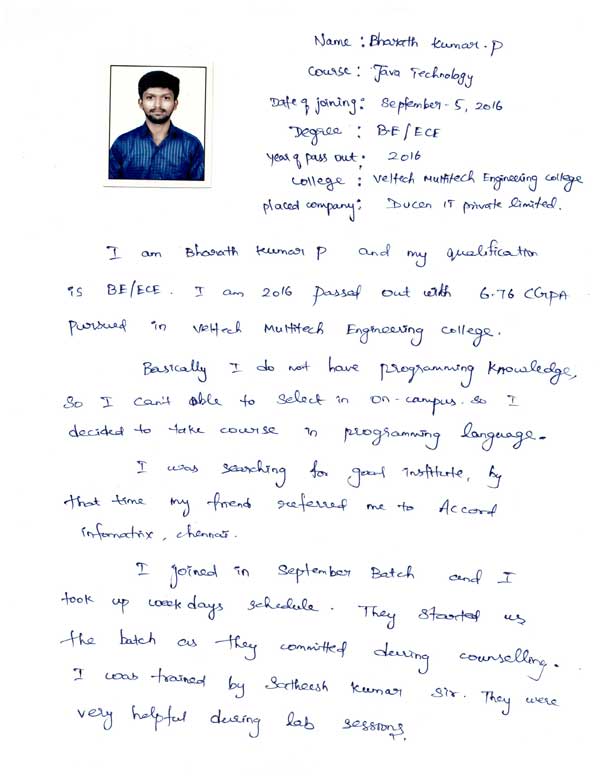 Name : Bharath Kumar.P
Course : Java Technology
Date of joining : September-5, 2016
Degree : BE/ECE
Year of pass out : 2016
College : Veltech Multitech Engineering college
placed company : Ducen IT private limited.
I am Bharath Kumar P and my qualification
is BE/ECE. I am 2016 passed out with 6.76 CGPA
pursued in Veltech Multitech Engineering college.
Basically I do not have programming knowledge,
so I can't able to select in on-campus. so I
decided to take course in programming language.
I was searching for good institute, by
that time my friend referred me to Accord
infomatrix, chennai.
I joined in September Batch and I
took up weekdays schedule. They started us
the batch as they committed during counselling.
I was trained by Satheesh Kumar sir. They were
very helpful during lab sessions.